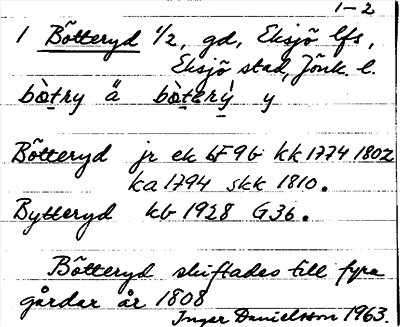 1-2
1 Bötteryd 1/2, gd, Eksjö lfs,
Eksjö stad, Jönk. l.
bòtry ä bòterỳ y
Bötteryd jr ek 4F9b kk 1774 1802
ka 1794 skk 1810.
Bytteryd kb 1928 G36.
Bötteryd skiftades till fyra
gårdar år 1808
Inger Danielsson 1963.